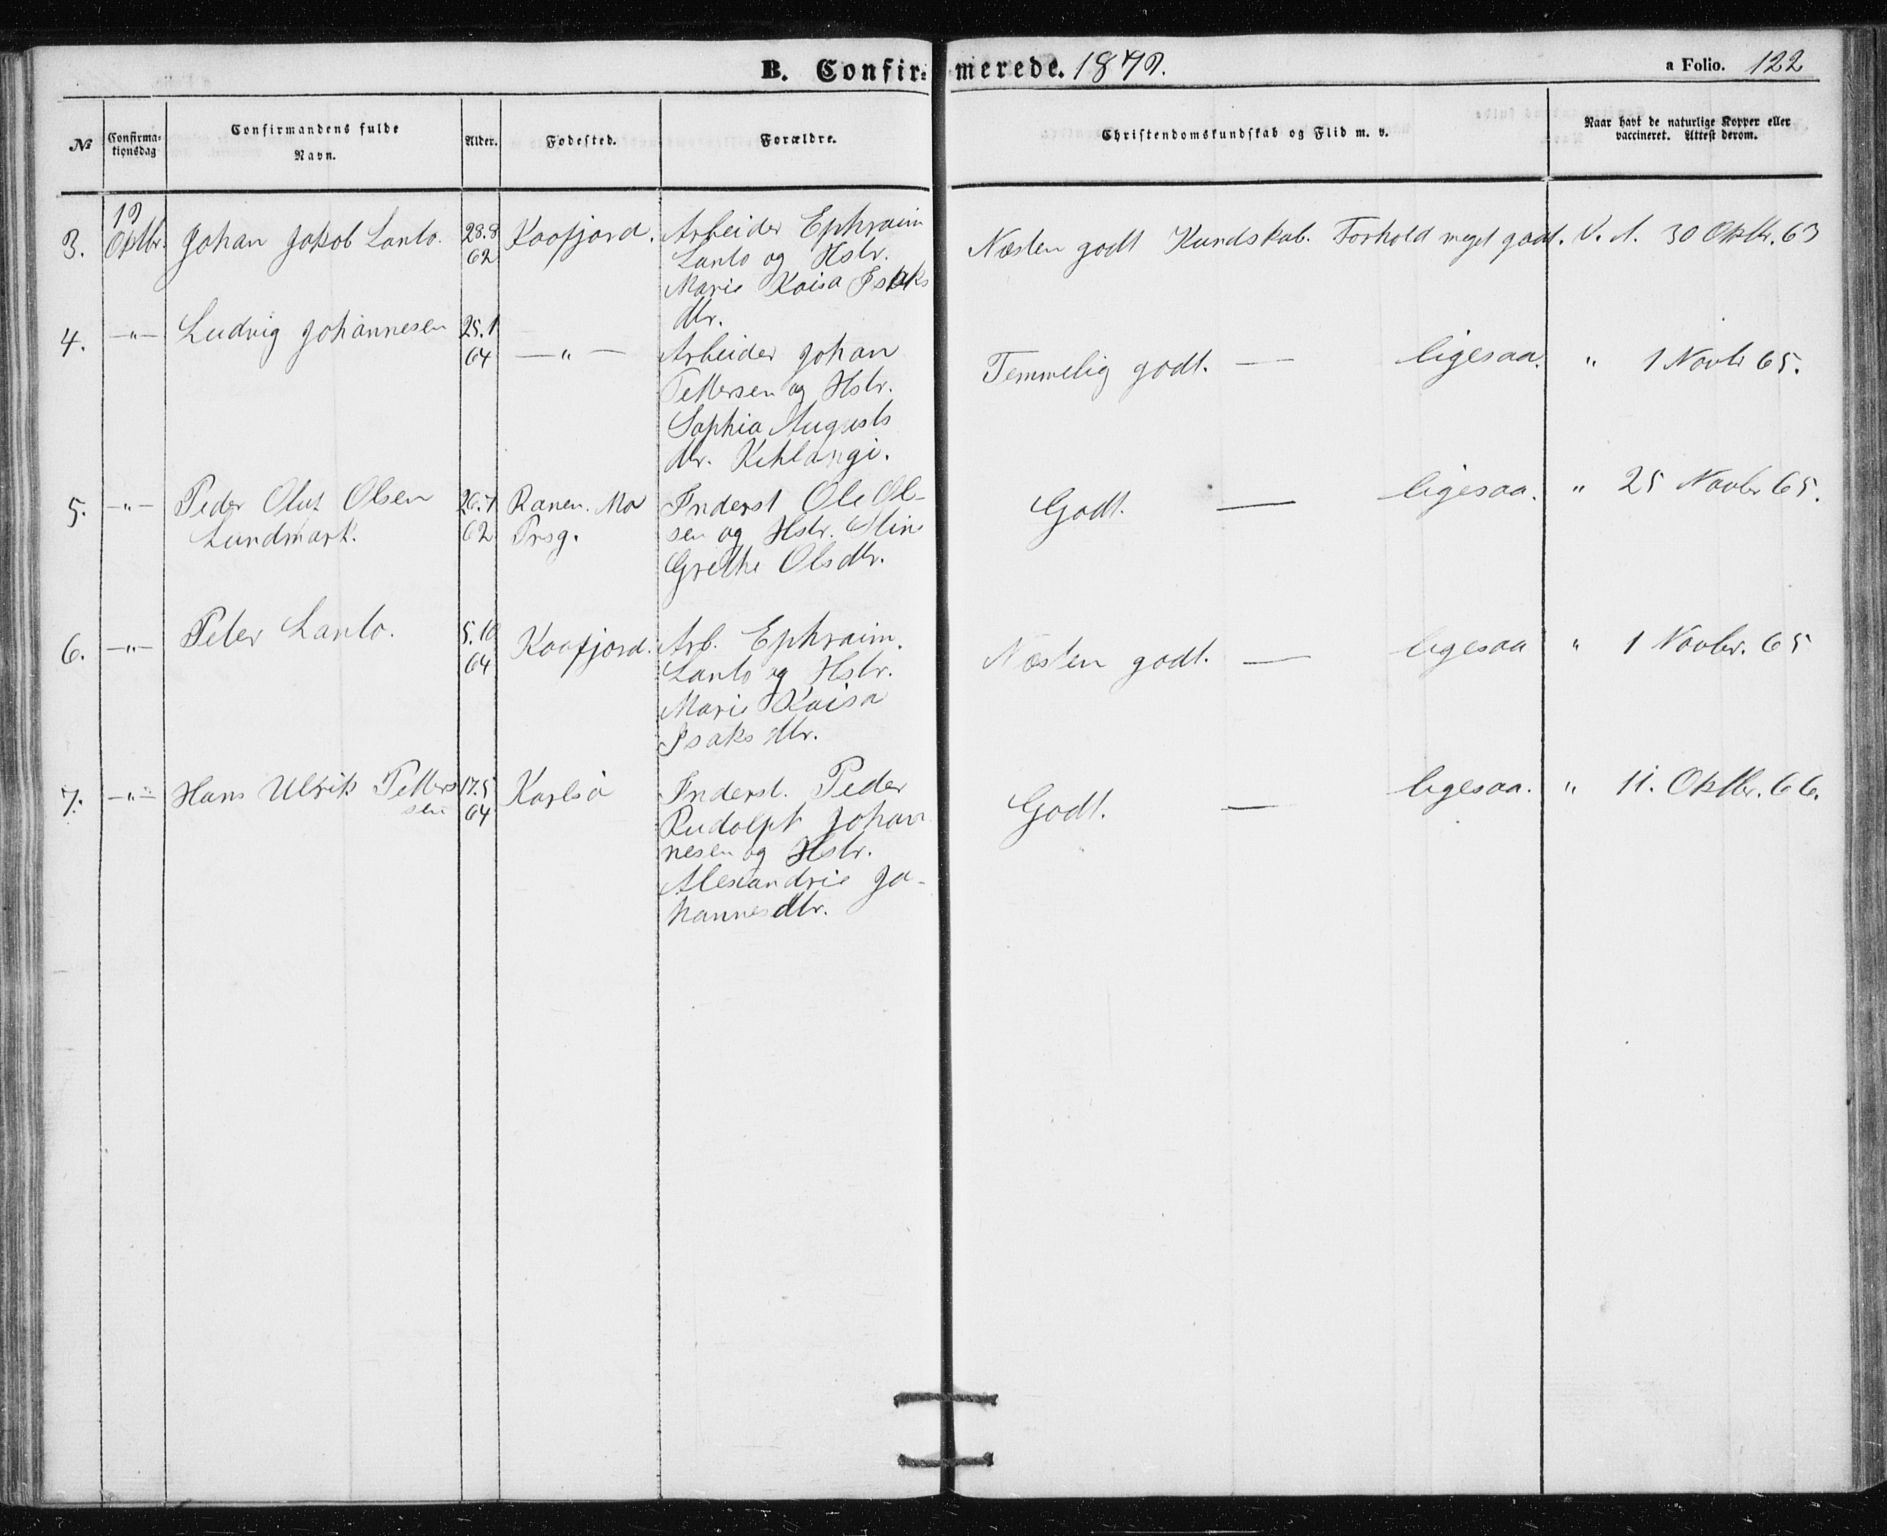 B. Confirmerede. 1879. a Folio. 122
№ Confirmationsdag Confirmandens fulde Navn. Alder. Fødested. Forældre. Christendomskundskab og Flid m. v. Naar havt de naturlige Kopper eller vaccineret. Attest derom.
19
3. Oktbr. Johan Jakob Lanto. 28.8 Kaafjord. Arbeider Ephraim Næsten godt Kundskab. Forhold meget godt. V. A. 30 Oktbr. 63
62 Lanto og Hstr.
Marie Kaisa Isaks
dtr.
4. —"— Ludvig Johannesen 25.1
64 —"— Arbeider Johan Temmelig godt. — ligesaa. " 1 Novbr 65.
Pettersen og Hstr.
Sophia Augusts
dtr. Kihlangi.
5. —"— Peder Oluf Olsen 26.7 Ranen. Mo Inderst Ole Ol- Godt. — ligesaa. " 25 Novbr 65.
Lundmark. 62 Prsg. sen og Hstr. Mine
Grethe Olsdtr.
6. —"— Peter Lanto. 5.10 Kaafjord. Arb. Ephraim. Næsten godt. — ligesaa " 1 Novbr. 65
64 Lanto og Hstr.
Marie Kaisa
Isaks dtr.
7. —"— Hans Ulrik Petter 17.5 Karlsö Inderst. Peder Godt. — ligesaa. " 11. Oktbr. 66.
sen 64 Rudolph Johan
nesen og Hstr.
Alexandrie Jo-
hannesdtr.